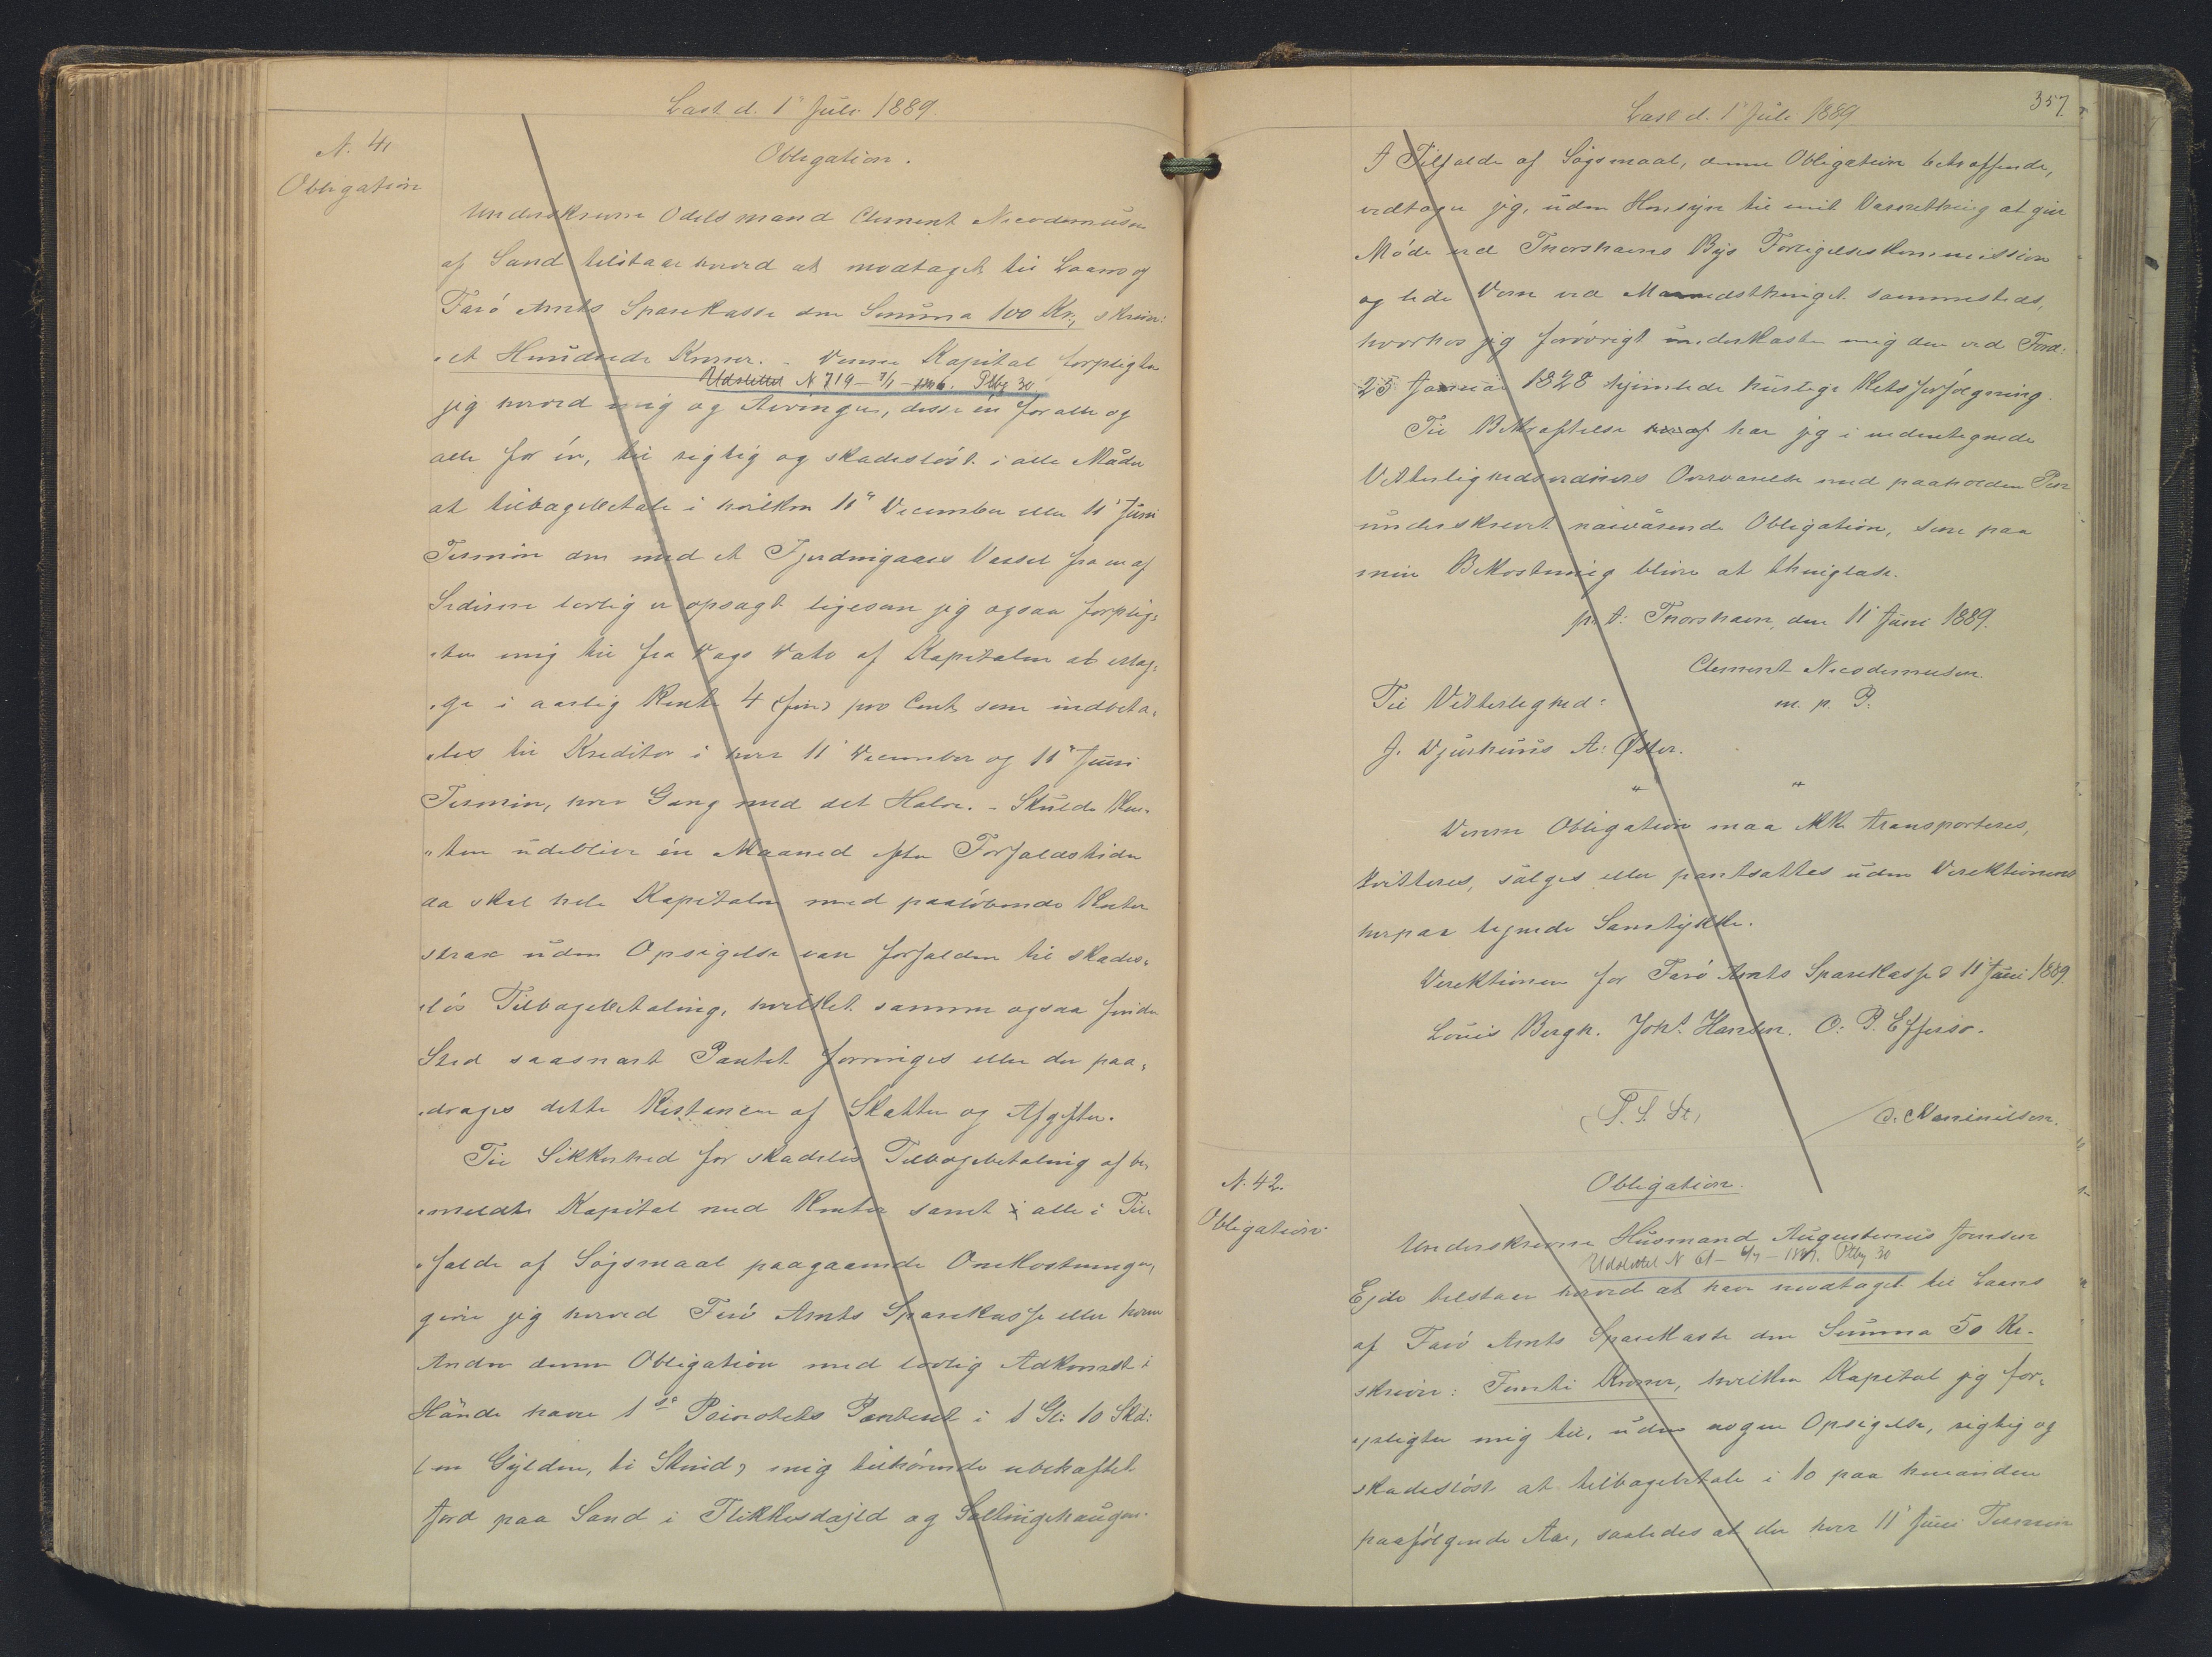 Læst d. 1" Juli 1889.
N. 41
Obligation
Obligation.
Underskrevne Odelsmand Clement Nicodemusen
af Sand tilstaar herved at modtaget til Laans af
Færö Amts Sparekasse den Summa 100 Kr., skriver:
et Hundrede Kroner. - Denne Kapital forpligter
Udslettet N 719 - Ptbg 30
jeg herved mig og Arvinger, disse én for alle og
alle for én, til rigtig og skadeslöst i alle Måder
at tilbagebetale i hvilken 11" December eller 11' Juni
Termin den med et Fjerdingaars Varsel fra en af
Siderne lovlig er opsagt ligesom jeg ogsaa forplig:
ter mig til fra Dags Dato af Kapitalen at erlæg:
ge i aarlig Rente 4 (fire) pro Cent, som indbeta:
les til Kreditor i hver 11' December og 11" Juni
Termin, hver Gang med det Halve. - Skulde Ren:
ten udeblive én Maaned efter Forfaldstiden
da skal hele Kapitalen med paalöbende Renter
strax uden Opsigelse være forfalden til skades:
lös Tilbagebetaling, hvilket samme ogsaa finder
Sted saasnart Pantet forringes eller der paa:
drages dette Restancer af Skatter og Afgifter.
Til Sikkerhed for skadelös Tilbagebetaling af be:
meldte Kapital med Renter samt i alle i Til:
fælde af Sögsmaal paagaaende Omkostninger,
giver jeg herved Færö Amts Sparekasse eller hvem
Andre denne Obligation med lovlig Adkomst i
Hænde havre 1ste Prioritets Panteret i 1 Gl: 10 Skd:
(en Gylden, ti Skind) mig tilhörende ubehæftet
Jord paa Sand i Flikkesdajld og Saltingehaugen.
357
Læst d. 1' Juli 1889
I Tilfælde af Sögsmaal, denne Obligation betræffende,
vedtager jeg, uden Hensyn til mit Værnething at give
Möde ved Thorshavns Byes Forligelseskommission
og lide Dom ved Maanedsthinget sammesteds,
hvorhos jeg forövrigt underkaster mig den ved Ford:
25. Januar 1828 hjemlede hurtige Retsforfölgning.
Til Bekræftelse heraf har jeg i undertegnede
Vitterlighedsvidners Overværelse med paaholden Pen
underskrevet nærværende Obligation, som paa
min Bekostning bliver at thinglæse.
p. t. Thorshavn, den 11' Juni 1889.
Clement Nicodemusen.
Til Vitterlighed: m. p. P.
J. Djurhuus A: Øster.
" "
Denne Obligation maa ikke transporteres,
kvitteres, sælges eller pantsættes uden Direktionens
herpaa tegnede Samtykke.
Direktionen for Færö Amts Sparekasse d 11 Juni 1889.
Louis Bergh. Joh.s Hansen. O: P. Effersö.
D. Danielsen.
N. 42.
Obligation.
Obligation.
Underskrevne Husmand Augustinus Joensen
Udslettet N 61 - Ptbg 30
Ejde tilstaar herved at have modtaget til Laans
af Færö Amts Sparekasse den Summa 50 Kr.
skriver: Femti Kroner, hvilken Kapital jeg for:
pligter mig til, uden nogen Opsigelse, rigtig og
skadeslöst at tilbagebetale i 10 paa hverandre
paafölgende Aar, saaledes at der hver 11' Juni Termin